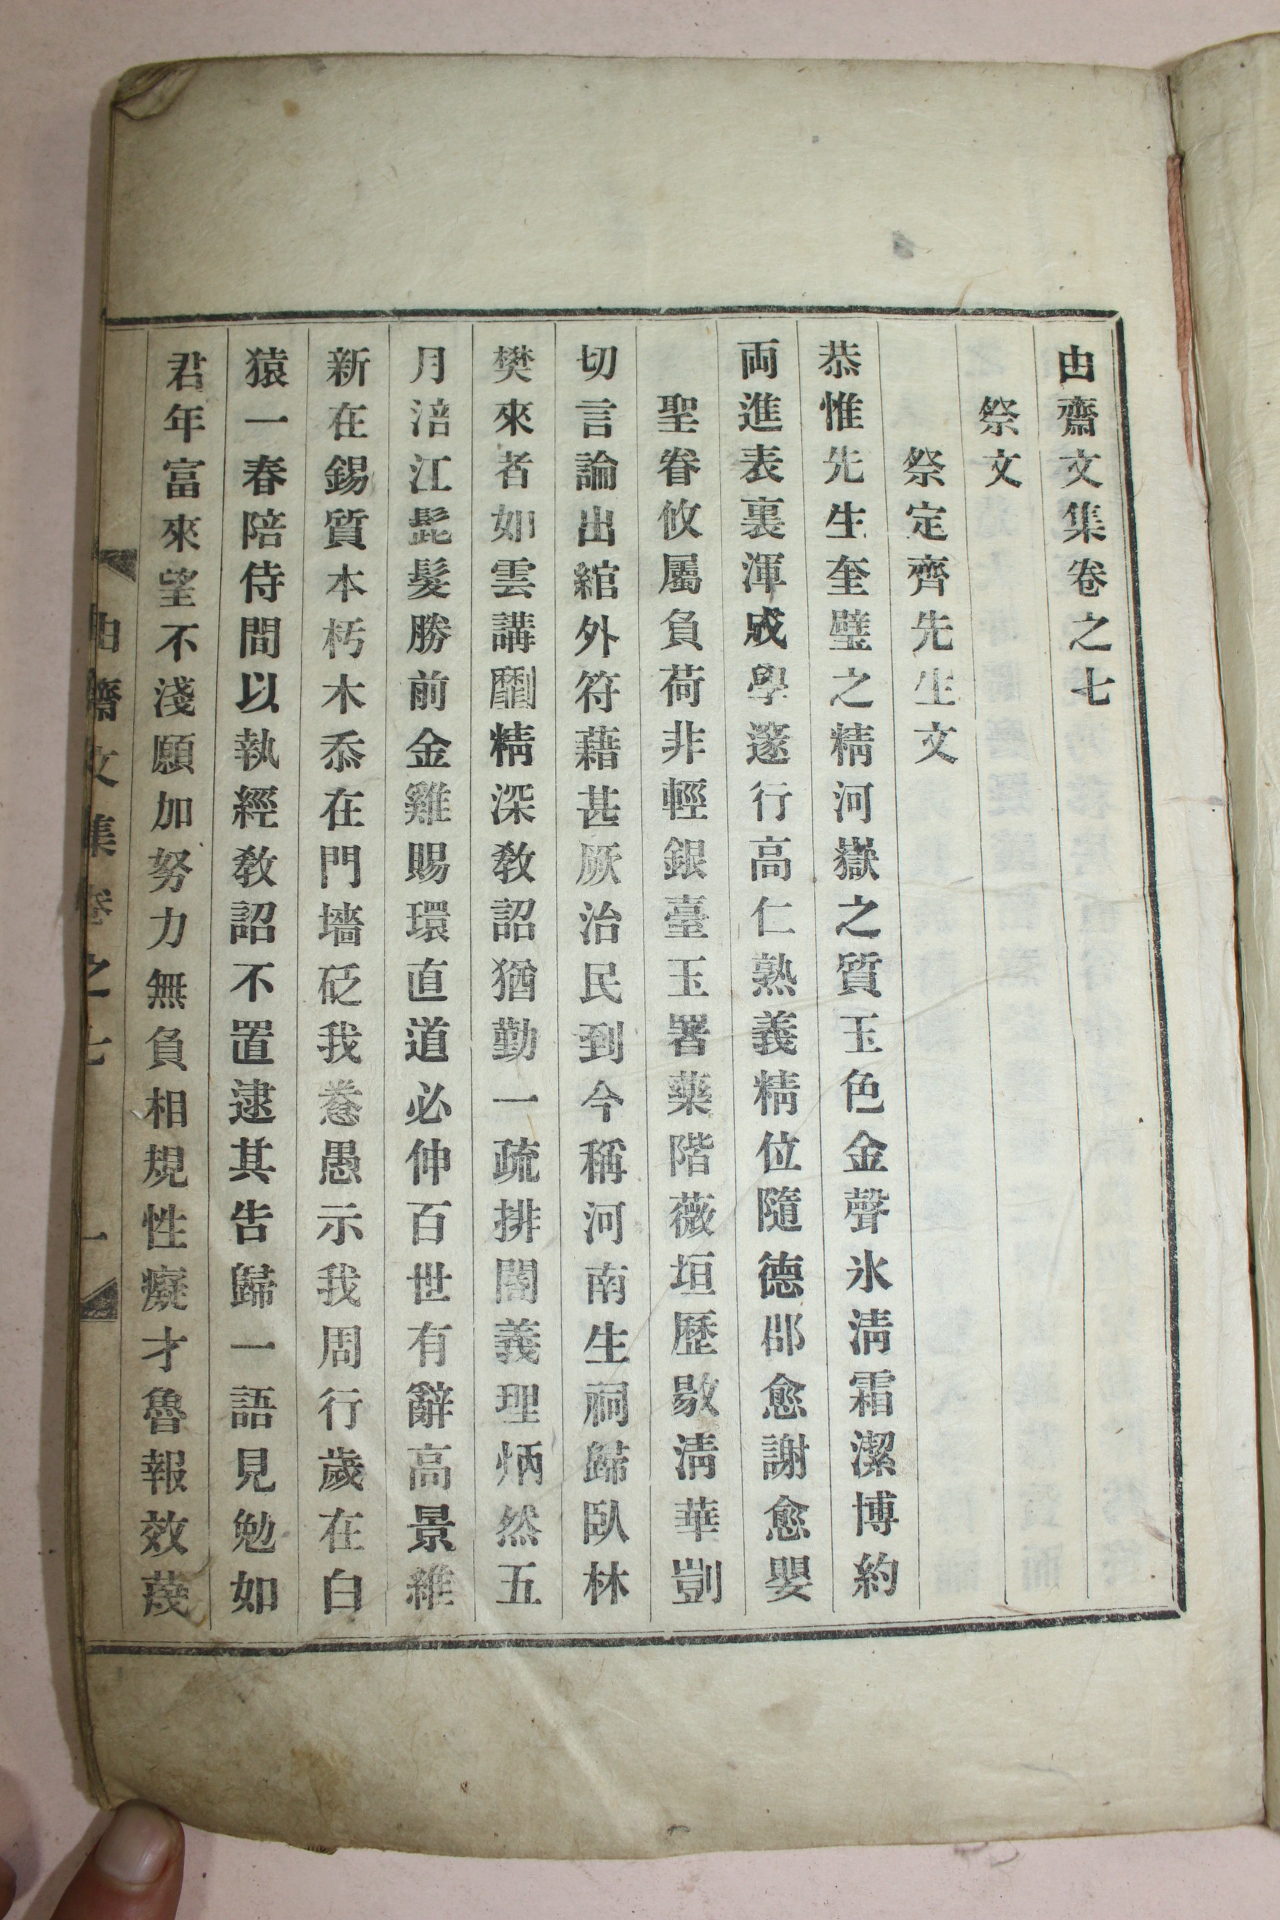 甴齋文集卷之七
祭文
祭定齊先生文
恭惟先生奎璧之精河嶽之質玉色金聲氷淸霜潔博約
両進表裏渾成學邃行高仁熟義精位隨德卲愈謝愈嬰
聖眷攸屬負荷非輕銀臺玉署藥階薇垣歷敭淸華剴
切言論出綰外符藉甚厥治民到今稱河南生祠歸臥林
樊來者如雲講劘精深敎詔猶勤一疏排闔義理炳然五
月涪江髭髮勝前金雞賜環直道必伸百世有辭高景維
新在錫質本朽木忝在門墻砭我惷愚示我周行歲在白
猿一春陪侍間以執經敎詔不置逮其告歸一語見勉如
君年富來望不淺願加努力無負相規性癡才魯報效蔑
甴齋文集卷之七 一